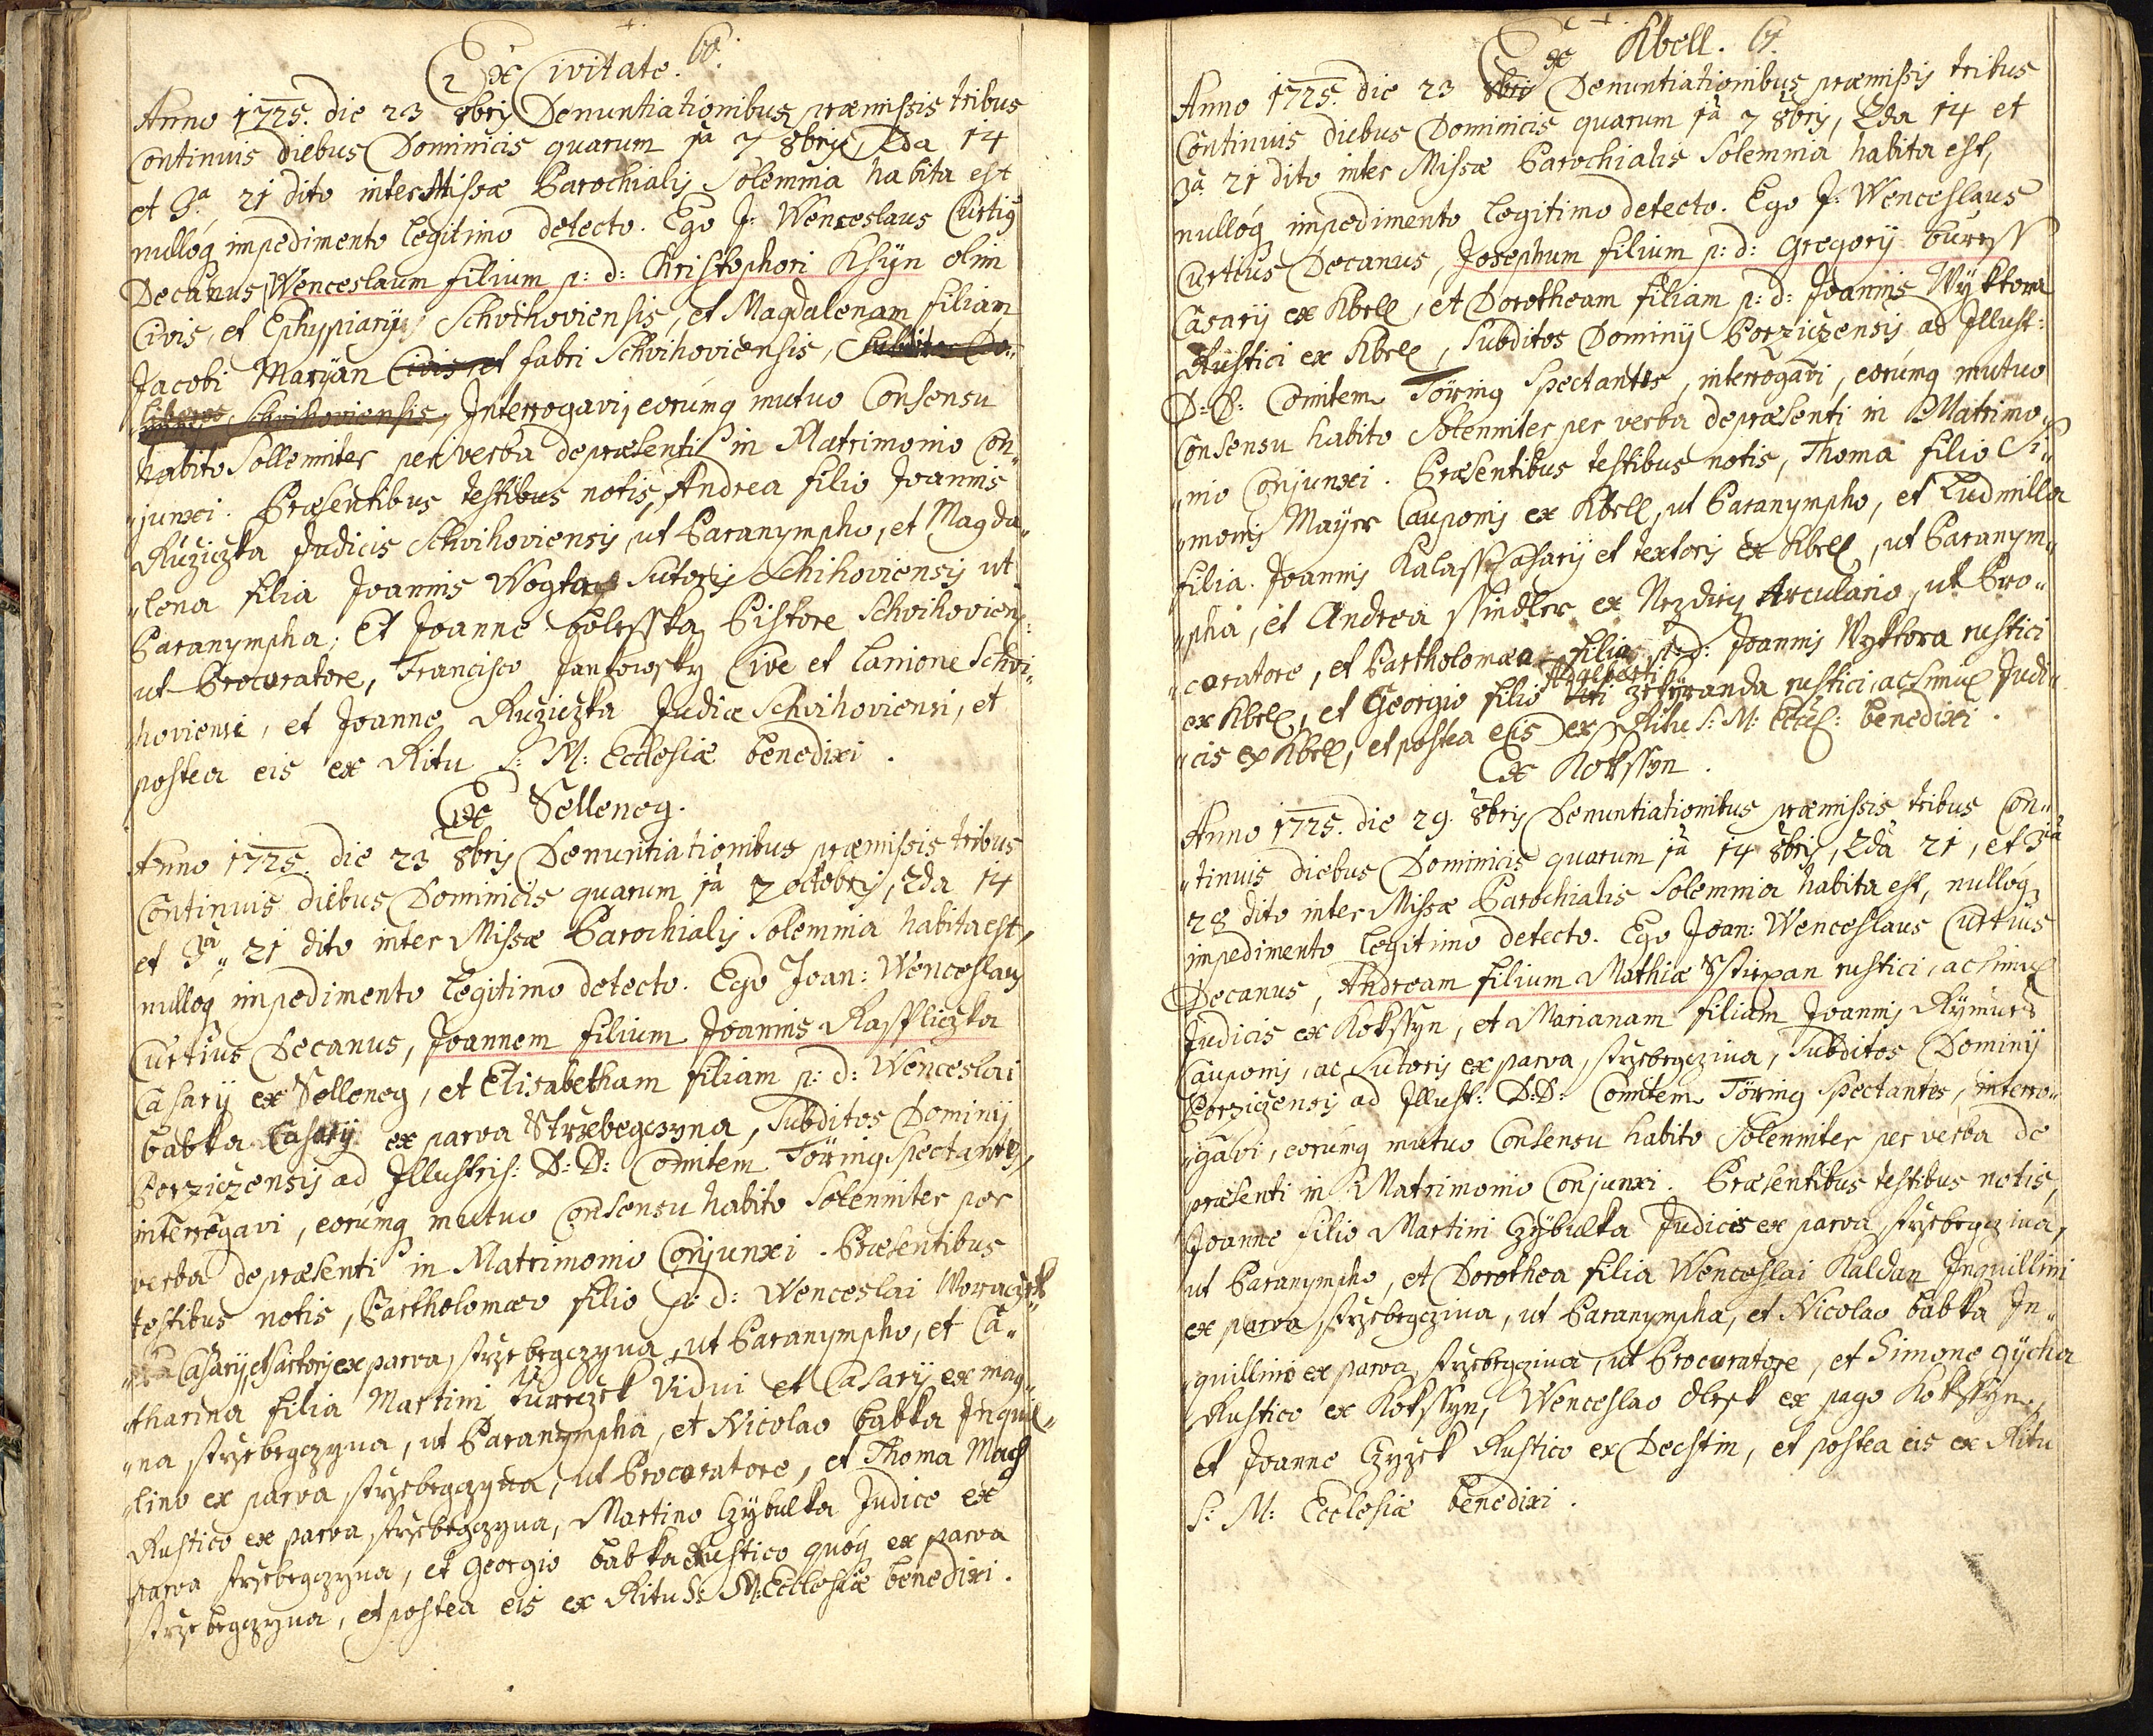 Ex Civitate. 60.
Anno 1725. die 23 8bris Denuntiationibus præmissis tribus
Continuis diebus Dominicis quarum 1a 7 8bris, 2da 14
et 3a 21 dito inter Missæ Parochialis Solemnia habita est
nulloq impedimento legitimo detecto. Ego J: Wenceslaus Curtius
Decanus, Wenceslaum filium p: d: Christophori Khÿn olim
Civis, et Ephypiarij Schvihoviensis, et Magdalenam filiam
Jacobi Marÿan Civis et fabri Schvihoviensis,
Schvihoviensis, Interrogavi, eorumq mutuo Consensu
habito Sollemniter per verba de præsenti in Matrimonio Con„
„junxi. Præsentibus testibus notis, Andrea filio Joannis
Ružiczka Judicis Schvihoviensis, ut Paranympho, et Magda„
„lena filia Joannis Wogta Sutoris Schihoviensis ut
Paranympha, Et Joanne Bolesska Pistore Schvihovien:
ut Procuratore, Francisco Jankowsky Cive et Lanione Schvi„
hoviensi, et Joanne Ružiczka Judice Schvihoviensi, et
postea eis ex Ritu S: M: Ecclesiæ benedixi.
Ex Selleneg.
Anno 1725. die 23 8bris Denuntiationibus præmissis tribus
Continuis diebus Dominicis quarum 1a 7 octobris, 2da 14
et 3a„ 21 dito inter Missæ Parochialis Solemnia habita est,
nulloq impedimento legitimo detecto. Ego Joan: Wenceslaus
Curtius Decanus, Joannem filium Joannis Raspliczka
Casarij ex Selleneg, et Elisabetham filiam p: d: Wenceslai
Babka Casarij ex parva Stržebegczyna, Subditos Dominij
Porziczensis ad Illustris: D: D: Comitem Törring Spectantes,
interrogavi, eorumq mutuo Consensu habito Solenniter per
verba de præsenti in Matrimonio Conjunxi. Præsentibus
testibus notis, Bartholomæo filio p: d: Wenceslai Woraczk
Casarij, et Sartoris ex parva stržebegczyna, ut Paranympho, et Ca„
„tharina filia Martini tureczek Vidui et Casarij ex mag„
„na stržebegczyna, ut Paranympha, et Nicolao Babka Inquil„
„lino ex parva stržebegczyna, ut Procuratore, et Thoma Mach
Rustico ex parva stržebegczyna, Martino Czybulka Judice ex
parva stržebegczyna, et Georgio Babka Rustico quóq ex parva
stržebegczyna, et postea eis ex Ritu S: M: Ecclesiæ benedixi.
Ex Kbell. 61.
Anno 1725. die 23 8bris Denuntiationibus præmissis tribus
Continuis diebus Dominicis quarum 1a 7 8bris, 2da 14 et
3a 21 dito inter Missæ Parochialis Solemnia habita est,
nulloq impedimento legitimo detecto. Ego J: Wenceslaus
Curtius Decanus, Josephum filium p: d: Gregorij Buress
Casarij ex Kbell, et Dorotheam filiam p: d: Joannis Wyktora
Rustici ex Kbell, Subditos Dominij Porziczensis ad Illust:
D: D: Comitem Törring Spectantes, interrogavi, eorumq mutuo
Consensu habito Solenniter per verba de præsenti in Matrimo„
„nio Conjunxi. Præsentibus testibus notis, Thoma filio Si„
„monis Mayer Cauponis ex Kbell, ut Paranympho, et Ludmilla
filia Joannis Kalass Casarij et textoris ex Kbell, ut Paranym„
„pha, et Andrea Ssindler ex Nezdicz Arculario, ut Pro„
„curatore, et Bartholomæo filio p: d: Joannis Wyktora rustici
ex Kbell, et Georgio filio Adalberti rustici, ac simul Judi„
„cis ex Kbell, et postea eis ex Ritu S: M: Eccles: benedixi.
Ex Kokssyn.
Anno 1725. die 29. 8bris Denuntiationibus præmissis tribus Con„
„tinuis diebus Dominicis quarum 1a 14 8bris, 2da 21, et 3a
28 dito inter Missæ Parochialis Solemnia habita est, nulloq
impedimento legitimo detecto. Ego Joan: Wenceslaus Curtius
Decanus, Andream filium Mathiæ Sstiepan rustici, ac simul
Judicis ex Kokssyn, et Marianam filiam Joannis Rymuss
Cauponis, ac Sutoris ex parva stržebegczina, Subditos Dominij
Porziczensis ad Illust: D: D: Comitem Törring Spectantes, interro„
„gavi, eorumq mutuo Consensu habito Solenniter per verba de
præsenti in Matrimonio Conjunxi. Præsentibus testibus notis,
Joanne filio Martini Czybulka Judicis ex parva stržebegczina,
ut Paranympho, et Dorothea filia Wenceslai Kaldan Inquillini
ex parva stržebegczina, ut Paranympha, et Nicolao Babka In„
„quillino ex parva stržebegczina, ut Procuratore, et Simone Gycha
Rustico ex Kokssyn, Wenceslao Olesk ex pago Kokssyn,
et Joanne Czyzek Rustico ex Dechtin, et postea eis ex Ritu
S: M: Ecclesiæ benedixi.